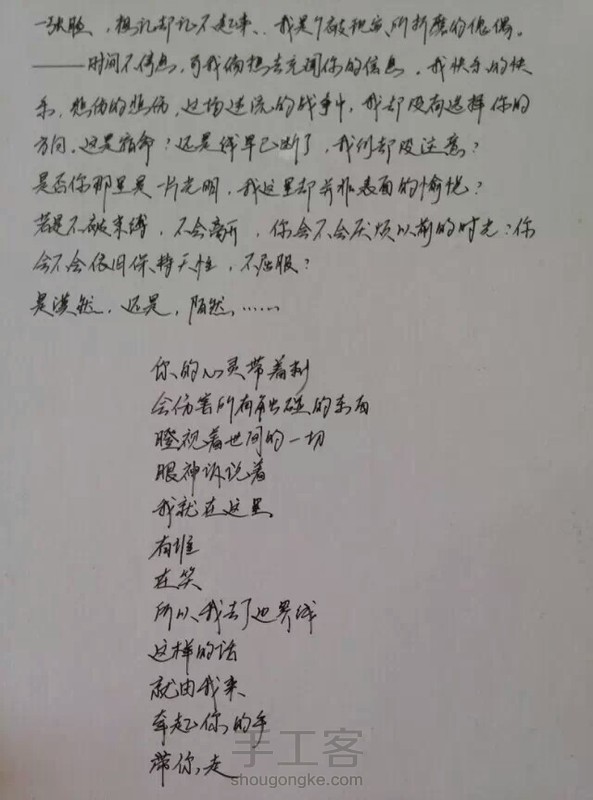 一张脸，想记却记不起来、我是个被现实所折磨的傀偶。
——时间不停息，可我偏想去充调你的信息，我快乐的快
乐，悲伤的悲伤，这场逆流的战争中，我却没有选择你的
方向，这是宿命？还是线早已断了，我们却没注意？
是否你那里是一片光明，我这里却并非表面的愉悦？
若是不被束缚，不会离开，你会不会厌烦以前的时光？你
会不会依旧保持天性，不屈服？
是漠然，还是，陌然，……
你的心灵带着刺
会伤害所有触碰的东西
瞪视着世间的一切
眼神诉说着
我就在这里
有谁
在笑
所以我去了边界线
这样的话
就由我来
牵起你的手
带你走
手工客
shougongke.com